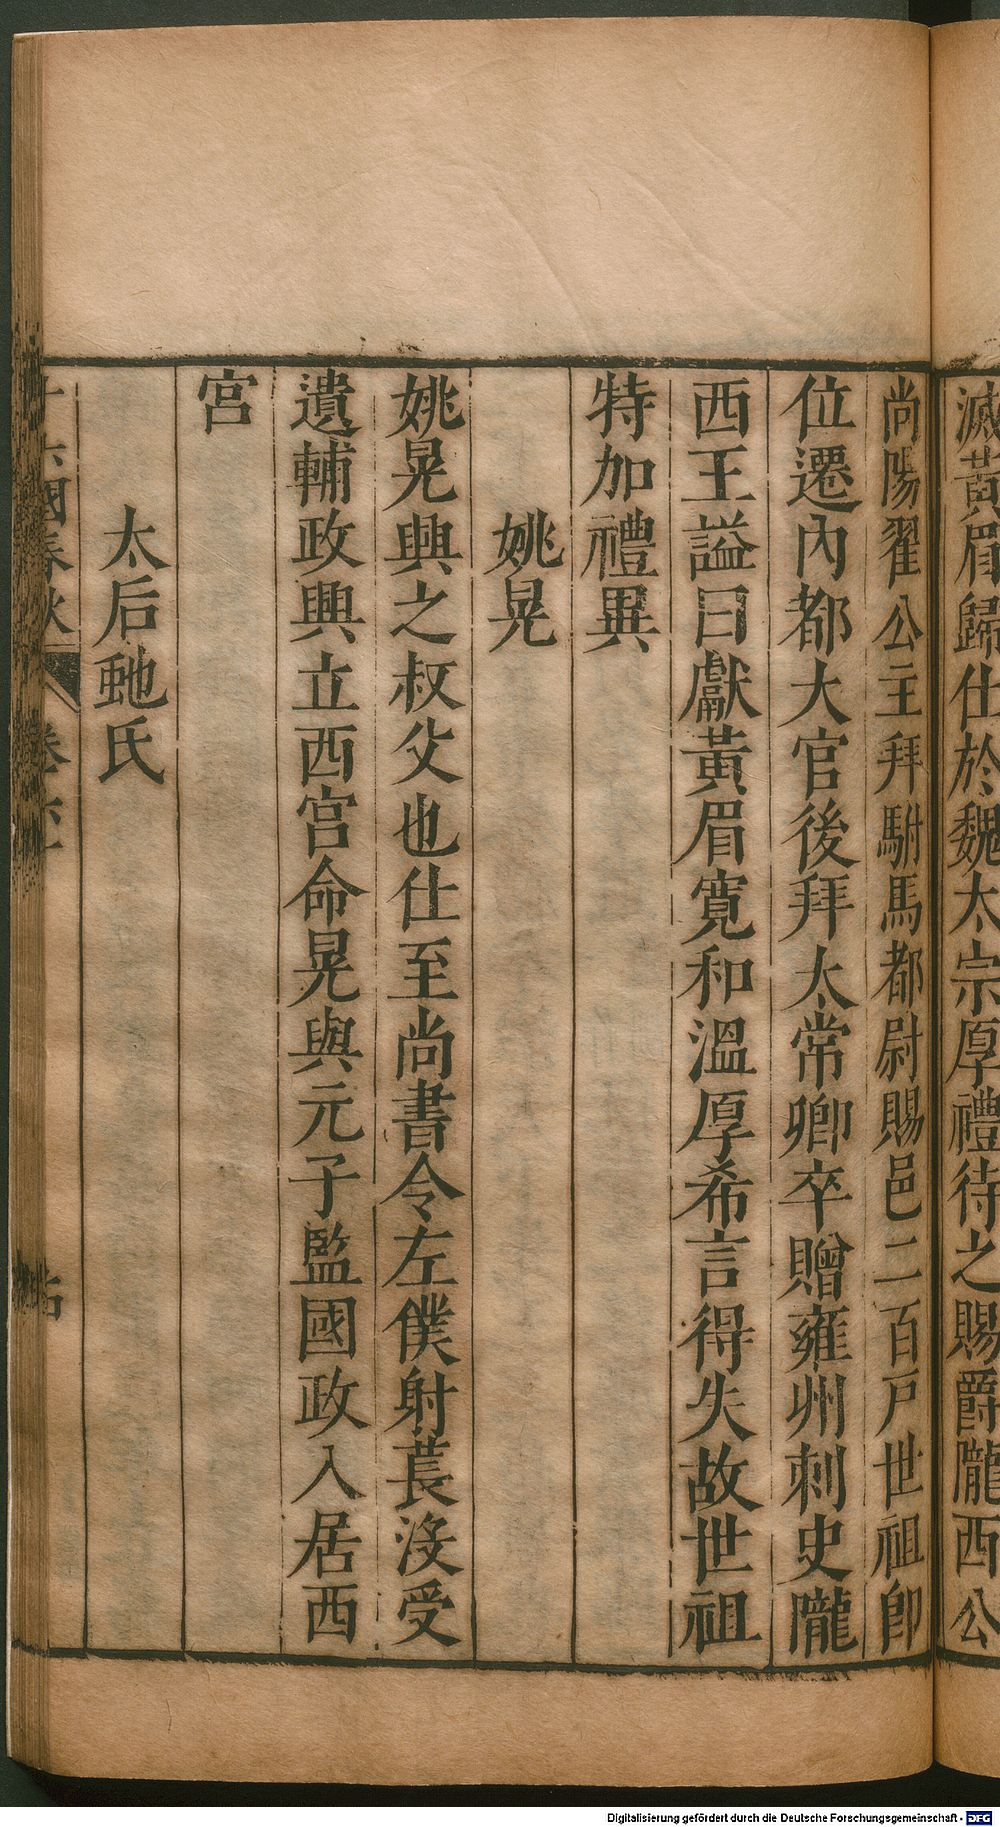 滅黃眉歸仕於魏太宗厚禮待之賜爵隴西公
尚陽翟公主拜駙馬都尉賜邑二百戸世祖卽
位遷內都大官後拜太常卿卒贈雍州刺史隴
西王謚曰獻黃眉寬和溫厚希言得失故世祖
特加禮異
姚晃
姚晃興之叔父也仕至尚書令左僕射萇沒受
遺輔政興立西宮命晃與元子監國政入居西
宮
太后虵氏
十六國春秋 卷六十
Digitalisierung gefördert durch die Deutsche Forschungsgemeinschaft - DFG